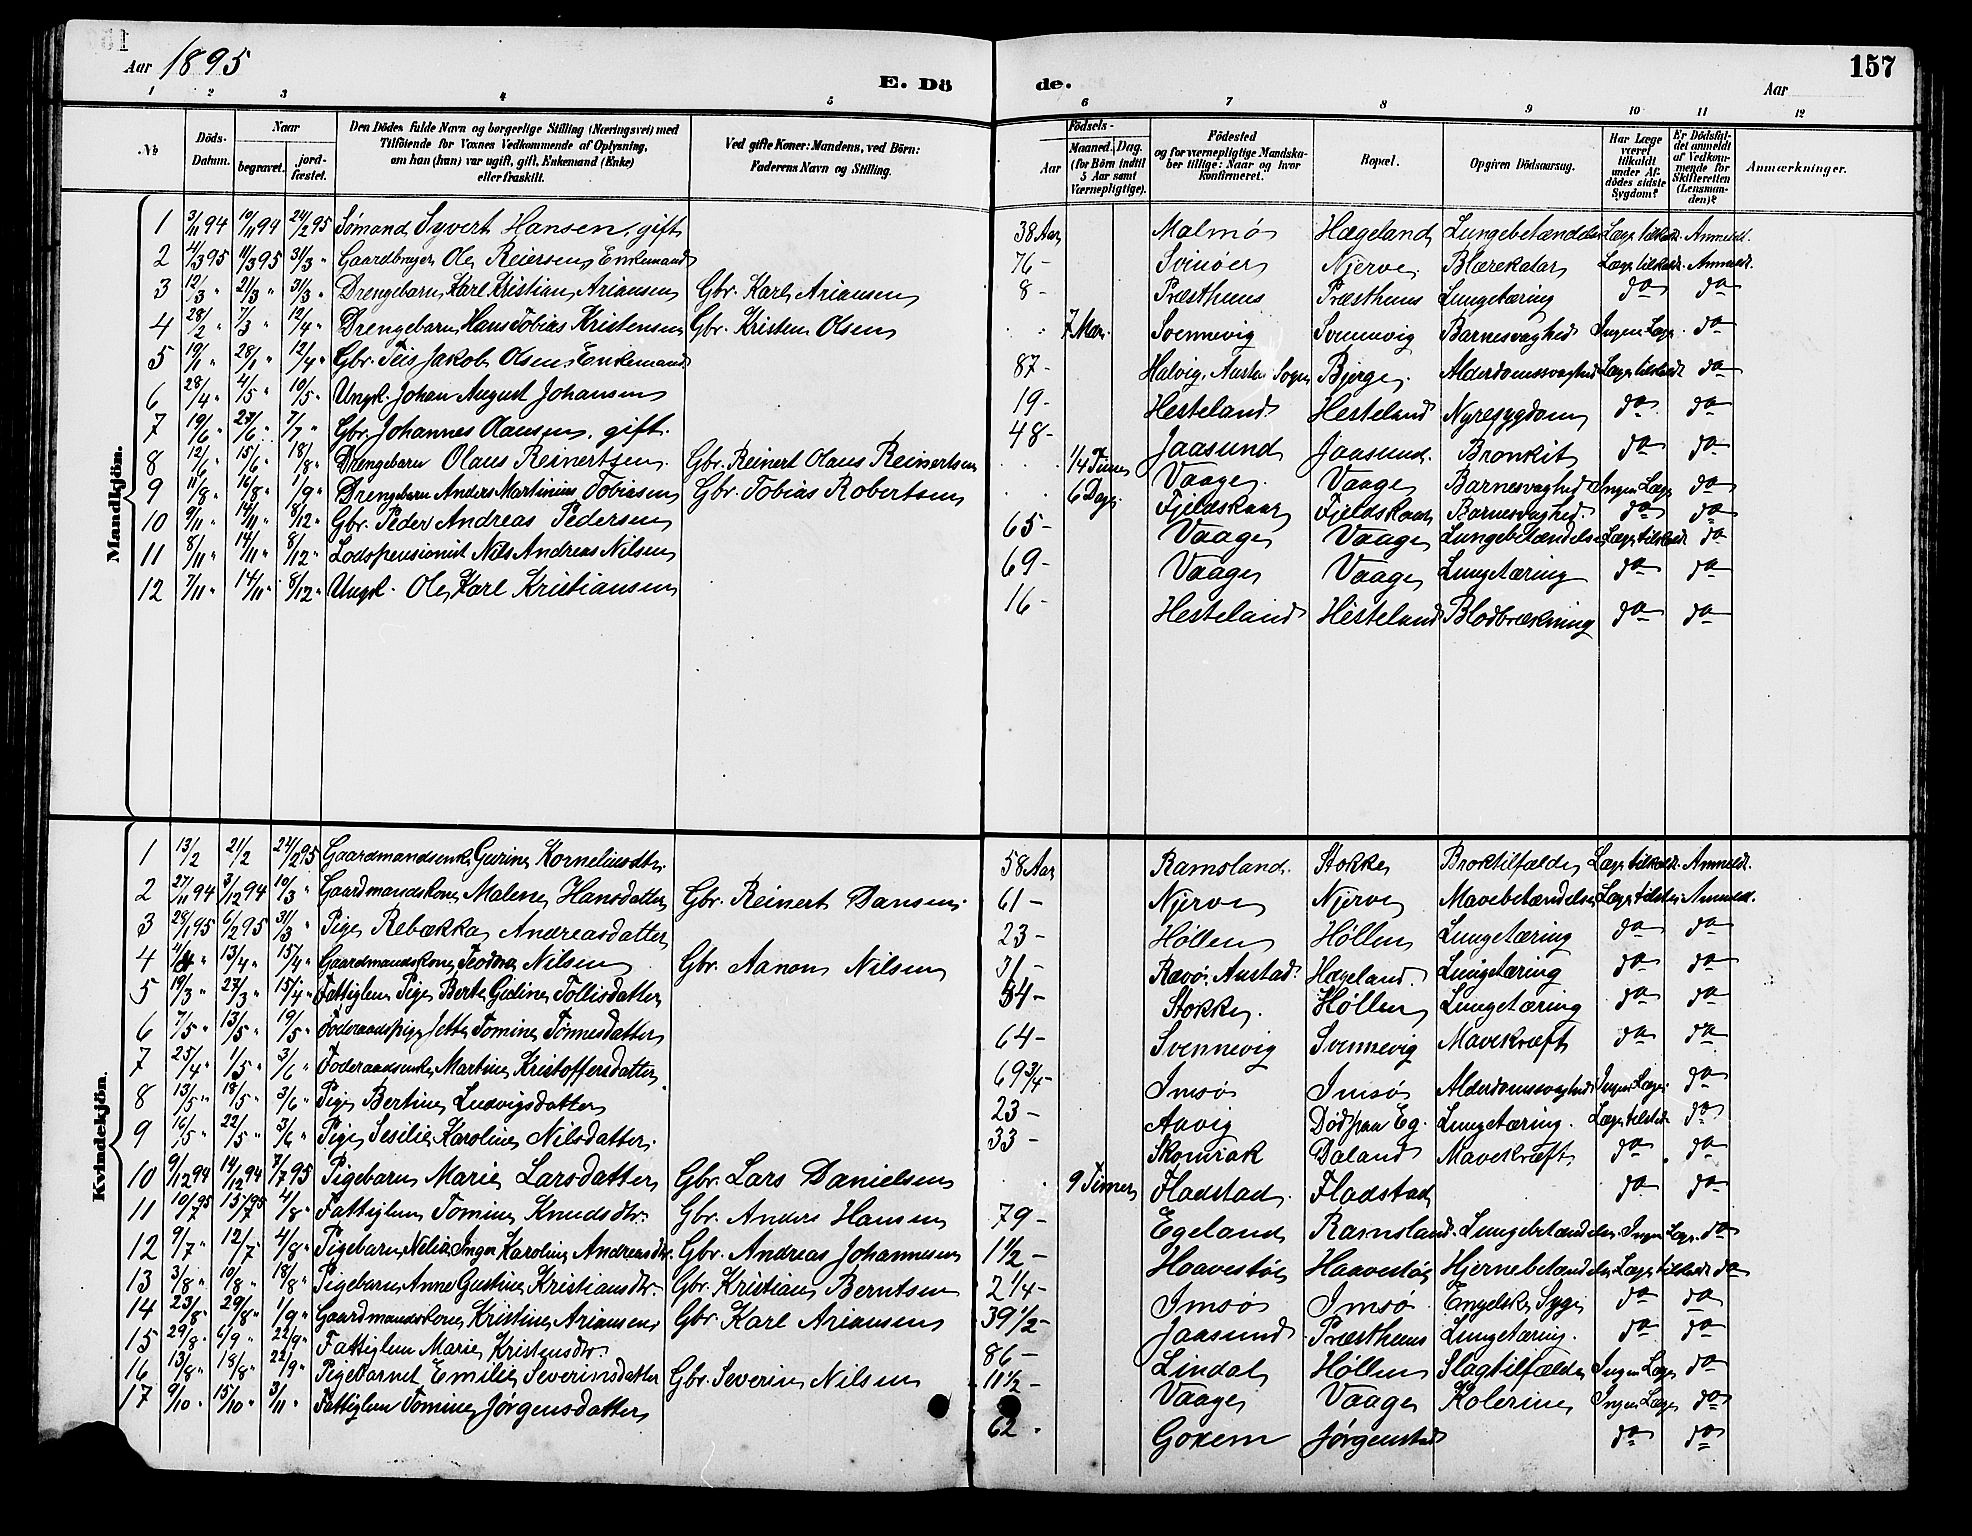 Aar 1895
E. Döde.
Aar
157
1 2 3 4 5 6 7 8 9 10 11 12
No
Döds-Datum.
Naar
begravet.
jordfæstet.
Den Dödes fulde Navn og borgerlige Stilling (Næringsvei) med
Tilföiende for Voxnes Vedkommende af Oplysning,
om han (hun) var ugift, gift, Enkemand (Enke)
eller fraskilt.
Ved gifte Koner: Mandens, ved Börn:
Faderens Navn og Stilling.
Födsels-
Aar
Maaned. Dag.
(for Börn indtil
5 Aar samt
Værnepligtige).
Födested
og for værnepligtige Mandska-
ber tillige: Naar og hvor
Konfirmeret.
Bopæl.
Opgiven Dödsaarsag.
Har Læge
været
tilkaldt
under Af-
dödes sidste
Sygdom?
Er Dödsfal-
det anmeldt
af Vedkom-
mende for
Skifteretten
(Lensman-
den)?
Anmærkninger.
Mandkjön.
1 3/11 94 10/11 94 24/2 95 Sømand Syvert Hansen, gift 38 Aar Malmø Hægeland Lungebetændelse Læge tilkaldt Anmeldt.
2 4/3 95 11/3 95 31/3 " Gaardbruger Ole Reiersen, Enkemand 76 - Svinøer Njerve Blærekatar Læge tilkaldt Anmeldt.
3 12/3 " 21/3 " 31/3 " Drengebarn Karl Kristian Ariansen Gbr. Karl Ariansen 8 - Præsthuus Præsthuus Lungetæring do do
4 28/2 " 7/3 " 12/4 " Drengebarn Hans Tobias Kristensen Gbr. Kristen Olsen 7 Maan. Svennevig Svennevig Barnesvaghed Ingen Læge do
5 19/1 " 28/1 " 12/4 " Gbr. Teis Jakob Olsen, Enkemand 87 - Halvig, Austad Sogn Bjerge Alderdomssvaghed Læge tilkaldt do
6 28/4 " 4/5 " 10/5 " Ungk. Johan August Johansen 19 - Hesteland Hesteland Nyresygdom do do
7 19/6 " 27/6 " 7/7 " Gbr. Johannes Aansen, gift. 48 - Jaasund Jaasund Bronkit do do
8 12/6 " 15/6 " 18/8 " Drengebarn Olaus Reinertsen Gbr. Reinert Olaus Reinertsen 1/4 Time Vaage Vaage Barnesvaghed Ingen Læge do
9 11/8 " 16/8 " 1/9 " Drengebarn Anders Martinius Tobiasen Gbr. Tobias Robertsen 6 Dage Fjeldskaar Fjeldskaar Barnesvaghed. do do
10 9/11 " 14/11 " 8/12 " Gbr. Peder Andreas Pedersen 65 - Vaage Vaage Lungebetændelse Læge tilkaldt do
11 8/11 " 14/11 " 8/12 " Lodspensionist Nils Andreas Nilsen 69 - Vaage Vaage Lungetæring do do
12 7/11 " 14/11 " 8/12 " Ungk. Ole Karl Kristiansen 16 - Hesteland Hesteland Blodbrækning do do
Kvindekjön.
1 13/2 21/2 24/2 95 Gaardmandsenke Gurine Korneliusdtr. 58 Aar Ramsland Stokke Broktilfælde Læge tilkaldt Anmeldt.
2 27/11 94 3/12 94 10/3 " Gaardmandskone Malene Hansdatter Gbr. Reinert Dansen 61 - Njerve Njerve Mavebetændelse Anmeldt.
3 28/1 95 6/2 95 31/3 " Pige Rebækka Andreasdatter 23 - Høllen Høllen Lungetæring do do
4 4/4 " 13/4 " 15/4 " Gaardmandskone Teodora Nilsen Gbr. Aanon Nilsen 31 - Rævø, Austad. Hægeland. Lungetæring do do
5 19/3 " 27/3 " 15/4 " Fattiglem Pige Berte Gudine Tollisdatter 54 - Stokke Høllen Lungetæring do do
6 7/5 " 13/5 " 19/5 " Foderaadspige Jette Tomine Tomesdatter 64 - Svennevig Svennevig Mavekræft do do
7 25/4 " 1/5 " 3/6 " Foderaadsenke Martine Kristoffersdatter 69 3/4 - Imsø Imsø Alderdomssvaghed Ingen Læge do
8 13/5 " 18/5 " 3/6 " Pige Bertine Ludvigsdatter 23 - Aavig Død paa Eg. Lungetæring. do
9 16/5 " 22/5 " 3/6 " Pige Sesilie Karoline Nilsdatter 33 - Skomrak Daland Mavekræft do do
10 9/12 94 14/12 94 7/7 95 Pigebarn Marie Larsdatter Gbr. Lars Danielsen 9 Timer Fladstad Fladstad do do
11 10/7 95 15/7 95 4/8 " Fattiglem Tomine Knudsdtr. Gbr. Anders Hansen 79 - Egeland Ramsland Lungebetændelse Ingen Læge do
12 9/7 " 12/7 " 4/8 " Pigebarn Nelia Inger Karoline Andreasdtr. Gbr. Andreas Johannesen 1 1/2 - Haavestøl Haavestøl Hjernebetændelse Læge tilkaldt do
13 3/8 " 10/8 " 18/8 " Pigebarn Anne Gustine Kristiansdtr. Gbr. Kristian Berntsen 2 1/4 - Imsø Imsø Engelsk Syge do do
14 23/8 " 29/8 " 1/9 " Gaardmandskone Kristine Ariansen Gbr. Karl Ariansen 39 1/2 - Jaasund Præsthuus Lungetæring. do do
15 29/8 " 6/9 " 22/9 " Fattiglem Marie Kristensdtr. 86 - Lindal Høllen Slagtilfælde Ingen Læge do
16 13/8 " 18/8 " 22/9 " Pigebarnet Emilie Severinsdatter Gbr. Severin Nilsen 11 1/2 - Vaage Vaage Kolerine Ingen Læge do
17 9/10 " 15/10 " 3/11 " Fattiglem Tomine Jørgensdatter 62 " Goxem Jørgenstad do do